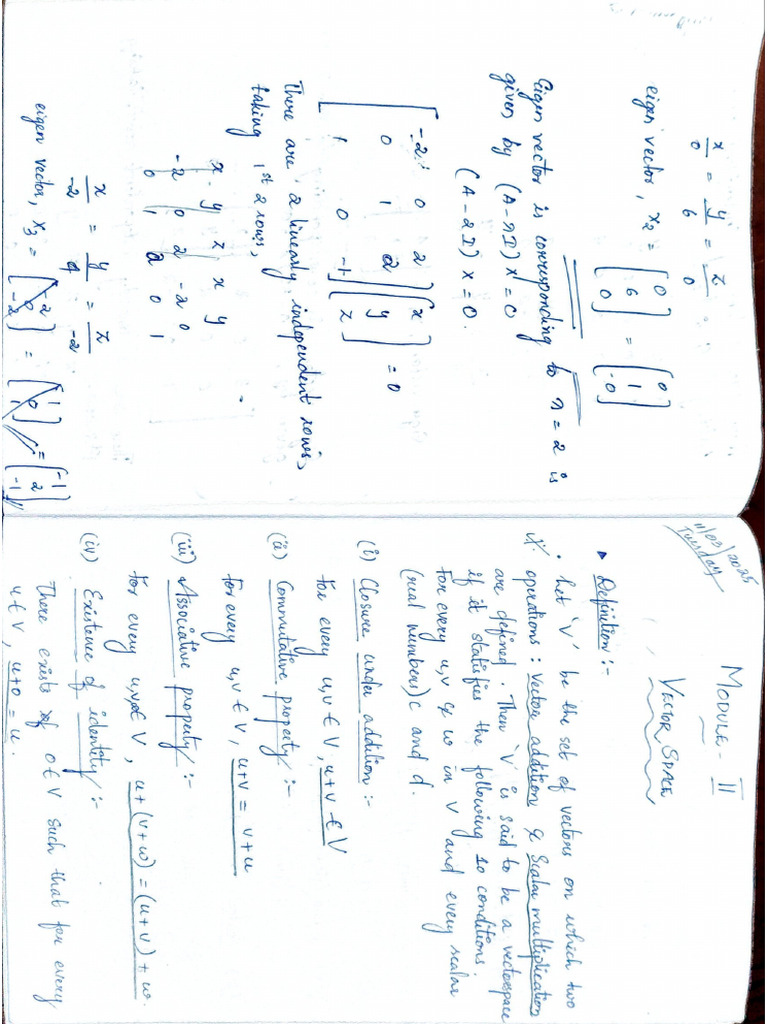 x/0 = y/6 = z/0
eigen vector, x2 = [0 6 0] = [0 1 0]
Eigen vector is corresponding to λ = 2 is
given by (A-λI) x = 0
(A-2I) x = 0.
[-2 0 2
0 1 2
1 0 -1] [x y z] = 0
There are 2 linearly independent rows,
taking 1st 2 rows,
x y z x y
-2 0 2 -2 0
0 1 2 0 1
x/-2 = y/4 = z/-2
eigen vector, x3 = = [-1 2 -1]
11/03/2025
Tuesday
MODULE - II
VECTOR SPACE
Definition :-
• Let 'V' be the set of vectors on which two
operations : vector addition & scalar multiplication
are defined. Then 'V' is said to be a vectorspace
if it statisfies the following 10 conditions.
For every u, v & w in V and every scalar
(real numbers) c and d.
(i) Closure under addition :-
For every u, v ∈ V, u+v ∈ V
(ii) Commutative property :-
For every u, v ∈ V, u+v = v+u
(iii) Associative property :-
For every u, v, w ∈ V, u+(v+w) = (u+v)+w.
(iv) Existence of identity :-
There exists 0 ∈ V such that for every
u ∈ V, u+0 = u.